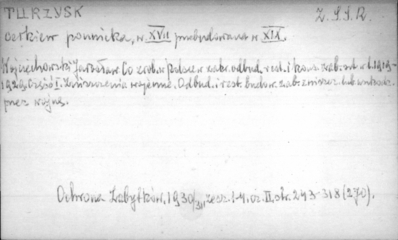 TURZYSK Z.S.S.R.
cerkiew pounicka, w XVII przebudowana w XIX.
Wojciechowski Jarosław. Co zrob. w Polsce w zakr. odbud. rest. i kons. zab. szt. w l. 1919-
1929. Część I. Zniszczenia wojenne. Odbud. i rest. budow. zab. zniszcz. lub uszkodz.
przez wojnę.
Ochrona Zabytków, 1930/31, zesz. 1-4. cz. II. str. 243-318 (270).